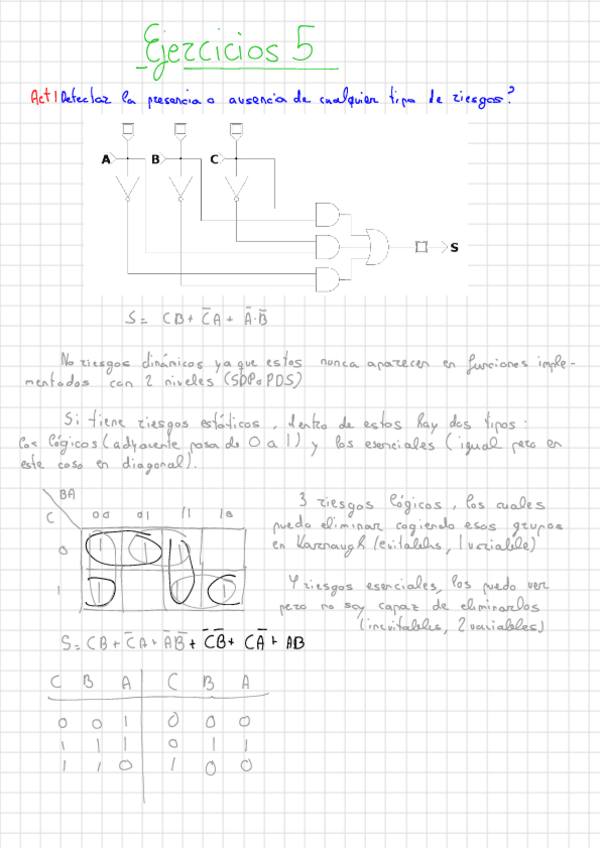 Ejercicios 5
Act1 Detectar la presencia o ausencia de cualquier tipo de riesgos?
A B C
S
S = CB + C̅A + A̅·B̅
No riesgos dinámicos ya que estos nunca aparecen en funciones imple-
mentados con 2 niveles (SDP o PDS)
Si tiene riesgos estáticos, dentro de estos hay dos tipos:
los lógicos (adyacente pasa de 0 a 1) y los esenciales (igual pero en
este caso en diagonal).
BA
C 00 01 11 10
0 1 1 1
1 1 1 1
3 riesgos lógicos, los cuales
puedo eliminar cogiendo esos grupos
en Karnaugh (evitables, 1 variable)
4 riesgos esenciales, los puedo ver
pero no soy capaz de eliminarlos
(inevitables, 2 variables)
S = CB + C̅A + A̅B̅ + C̅B̅ + CA̅ + AB
C B A C B A
0 0 1 0 0 0
1 1 1 0 1 1
1 1 0 1 0 0